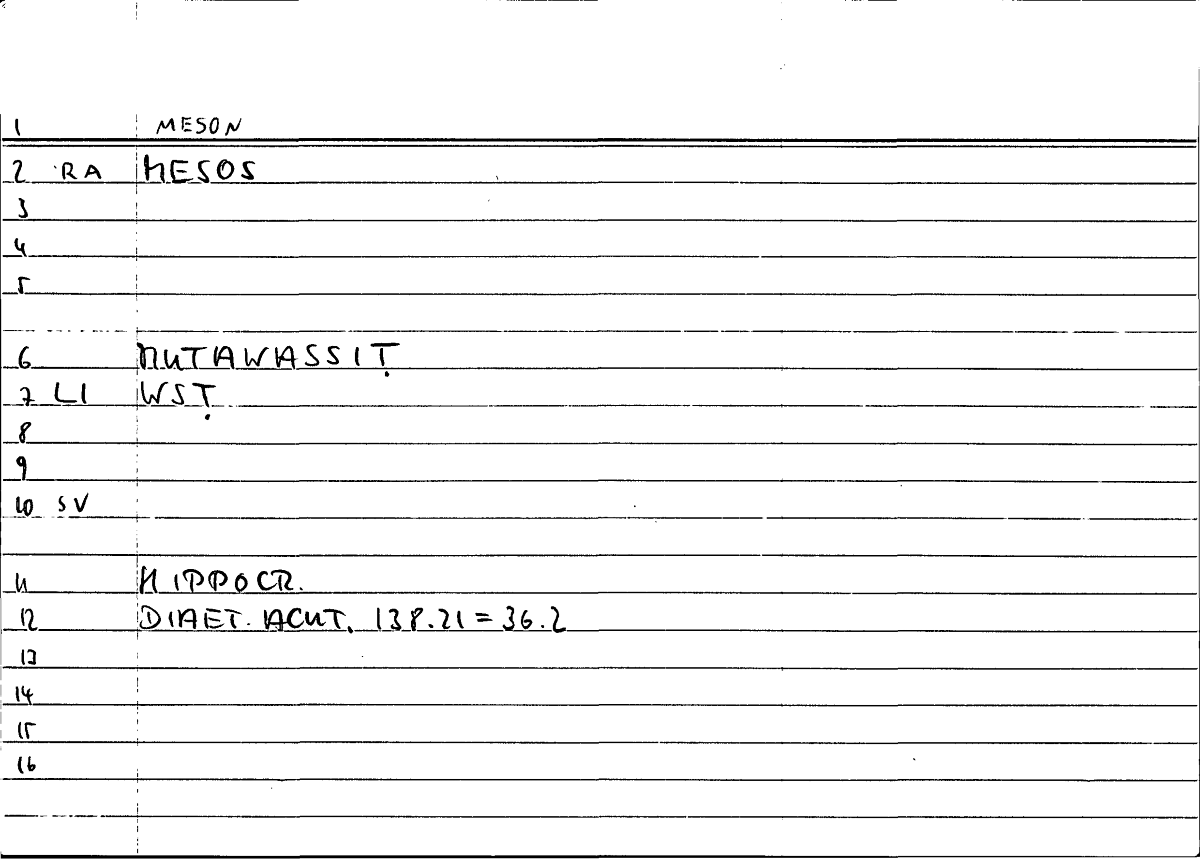 1 MESON
2 RA MESOS
3
4
5
6 MUTAWASSIṬ
7 LI WSṬ
8
9
10 SV
11 HIPPOCR.
12 DIAET. ACUT. 138.21 = 36.2
13
14
15
16